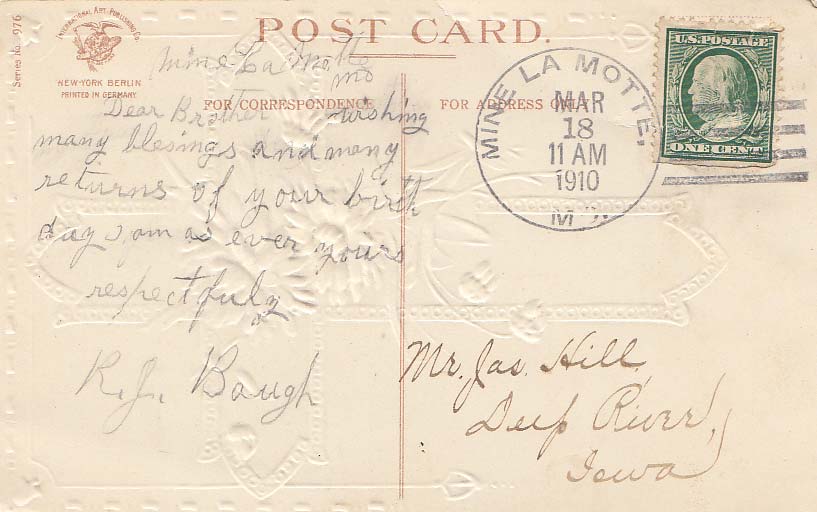 Series No. 976
INTERNATIONAL ART PUBLISHING CO.
NEW-YORK BERLIN
PRINTED IN GERMANY.
POST CARD.
FOR CORRESPONDENCE
FOR ADDRESS ONLY
U.S. POSTAGE
ONE CENT
MINE LA MOTTE,
MAR
18
11 AM
1910
Mine La Motte
Mo
Dear Brother wishing
many blesings and many
returns of your birth
day I am as ever yours
respectfuly
R. J. Baugh
Mr. Jas. Hill
Deep River,
Iowa